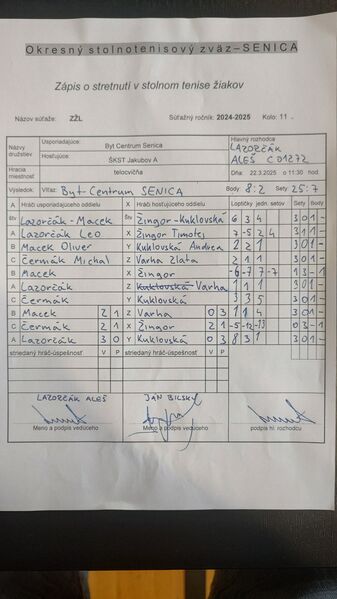 Okresný stolnotenisový zväz – SENICA
Zápis o stretnutí v stolnom tenise žiakov
Názov súťaže: ZŽL Súťažný ročník: 2024-2025 Kolo: 11 .
Názvy družstiev Usporiadajúce: Byt Centrum Senica Hlavný rozhodca
Hosťujúce: ŠKST Jakubov A LAZORČÁK ALEŠ C01272
Hracia miestnosť telocvičňa Dňa 22.3.2025 o 11:30 hod
Výsledok: Víťaz: Byt Centrum SENICA Body 8:2 Sety 25:7
A Hráči usporiadajúceho oddielu X Hráči hosťujúceho oddielu Loptičky jedn. setov Sety Body
štv Lazorčák - Macek štv Žingor - Kuklovská 6 3 4 3 0 1 -
A Lazorčák Leo X Žingor Timotej 7 -5 2 4 3 1 1 -
B Macek Oliver Y Kuklovská Andrea 2 2 1 3 0 1 -
C Čermák Michal Z Varha Zlata 2 1 1 3 0 1 -
B Macek X Žingor -6 -7 7 -7 1 3 - 1
A Lazorčák Z Varha 1 1 1 3 0 1 -
C Čermák Y Kuklovská 3 3 5 3 0 1 -
B Macek 2 1 Z Varha 0 3 1 1 4 3 0 1 -
C Čermák 2 1 X Žingor 2 1 -5 -12 -13 0 3 - 1
A Lazorčák 3 0 Y Kuklovská 0 3 8 3 1 3 0 1 -
striedaný hráč-úspešnosť V P striedaný hráč-úspešnosť V P
LAZORČÁK ALEŠ JÁN BILSKÝ
Meno a podpis vedúceho Meno a podpis vedúceho podpis hl. rozhodcu